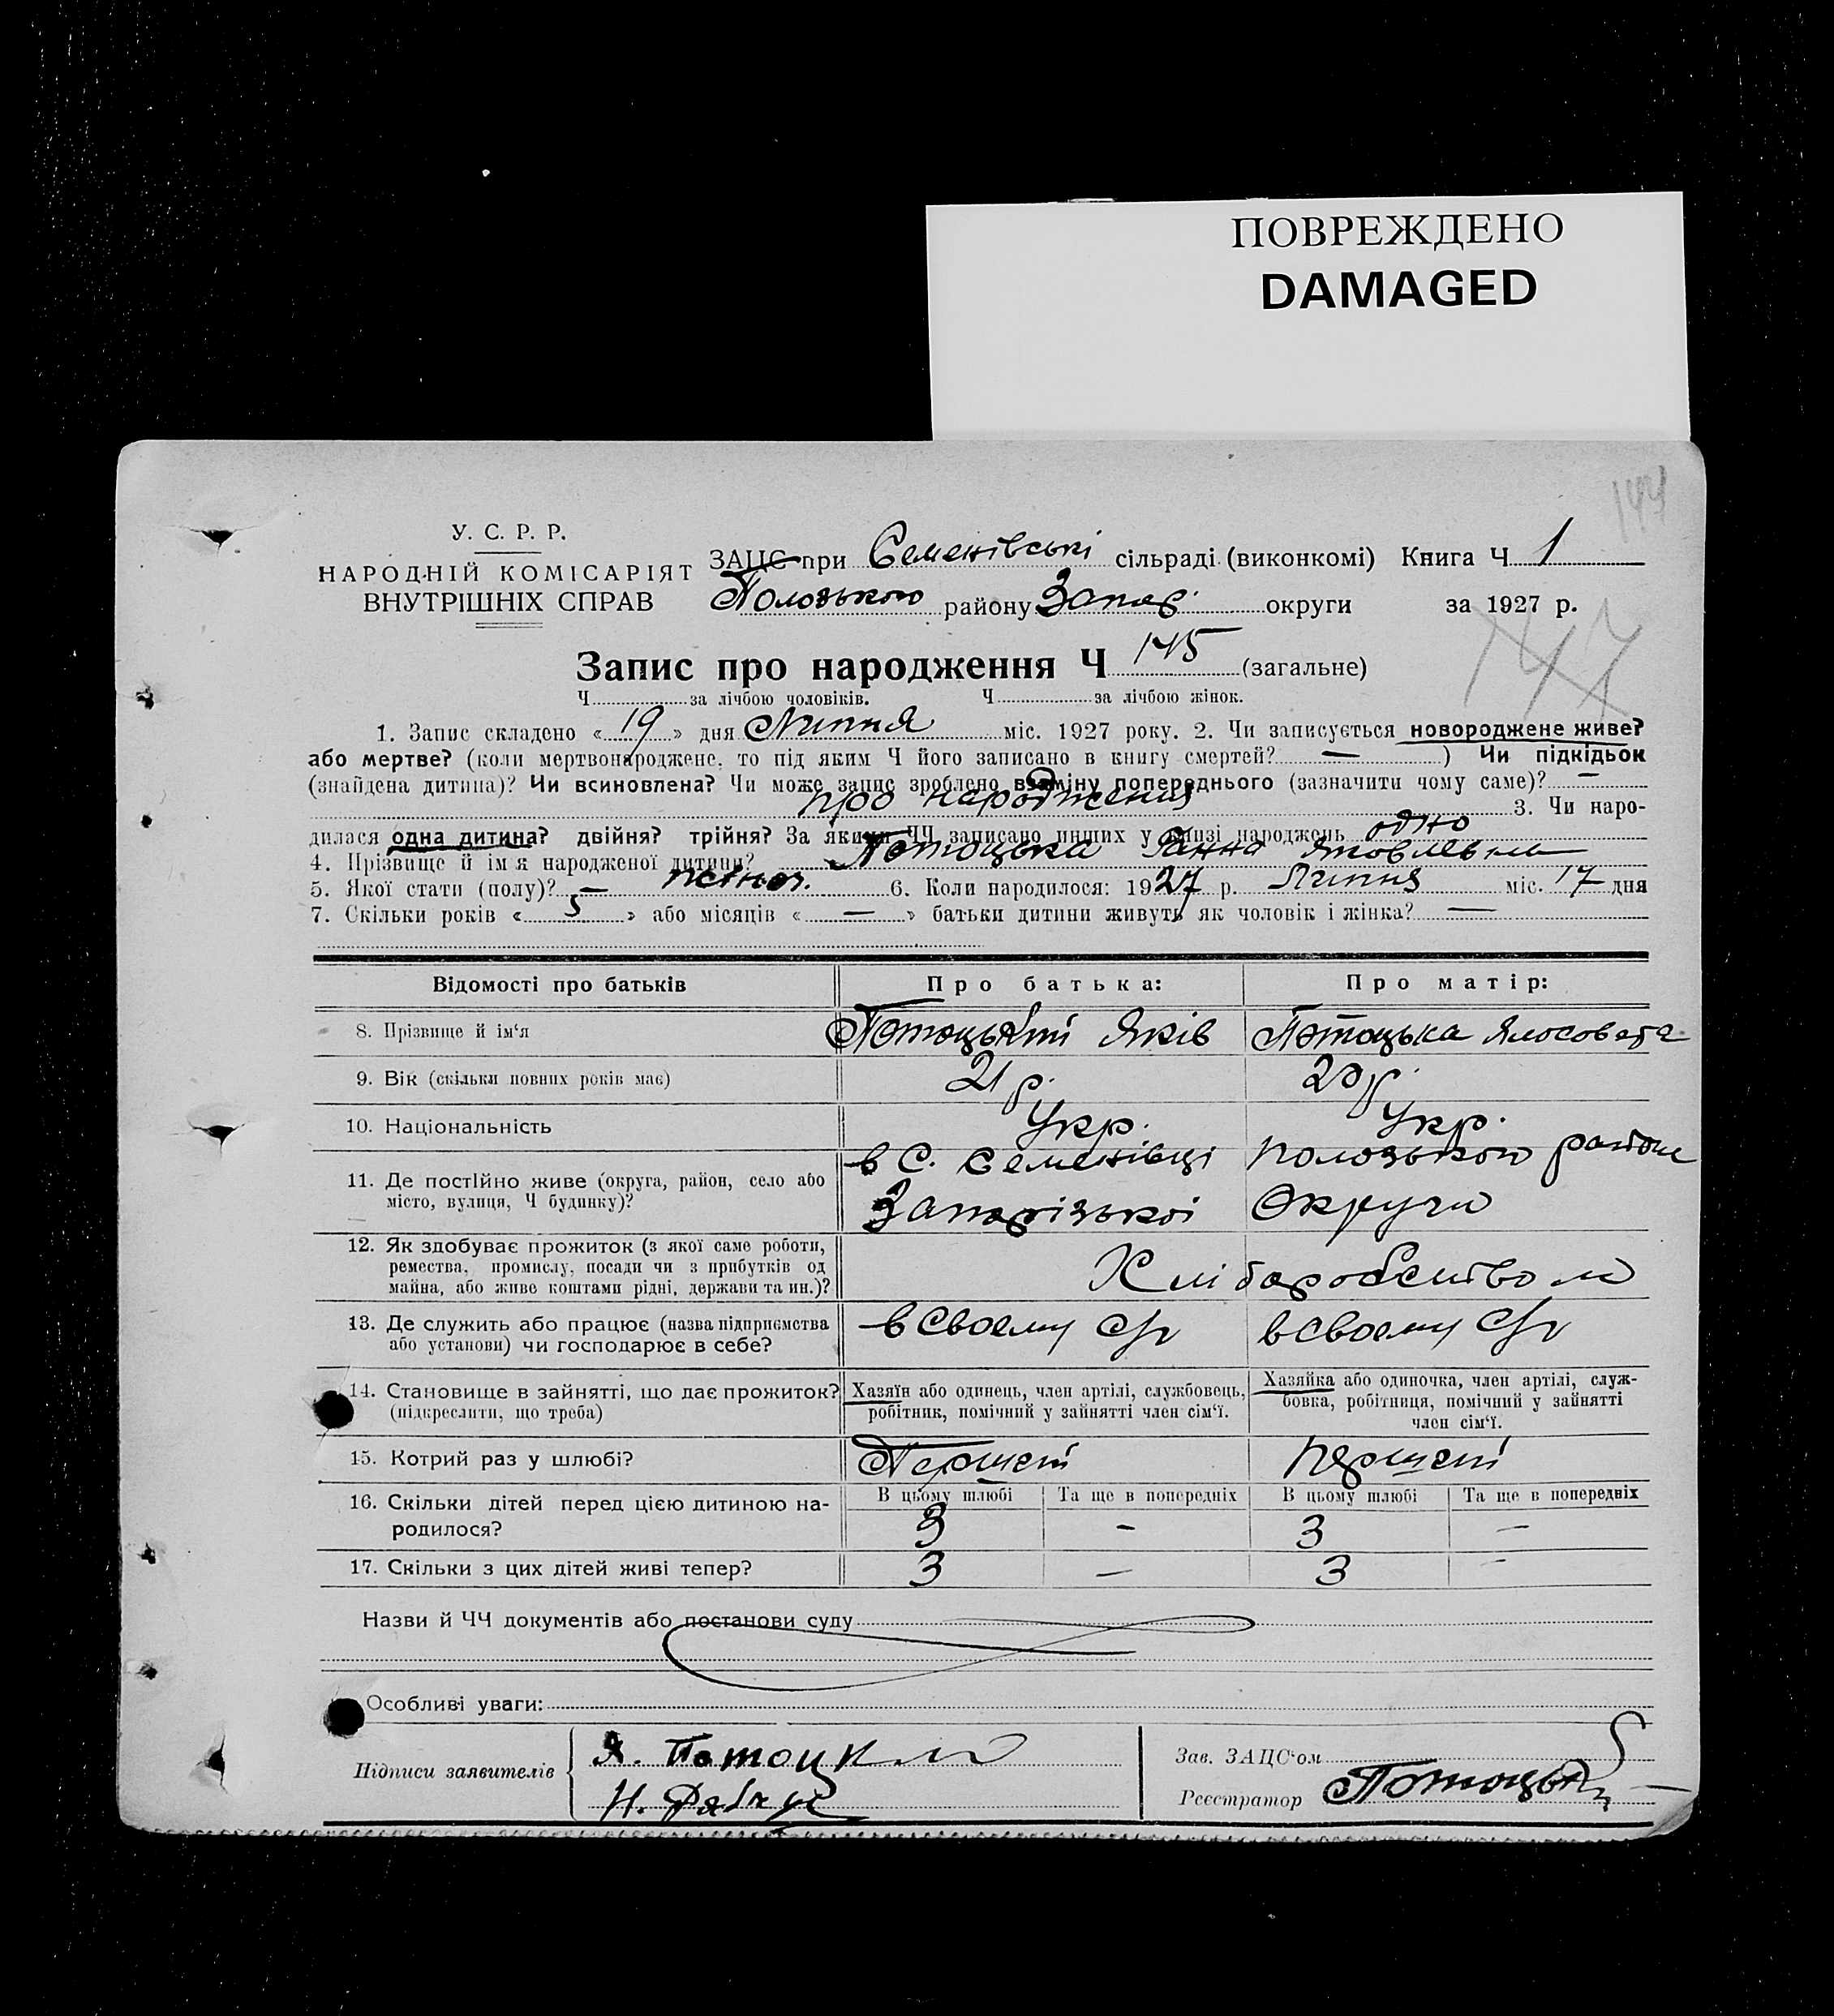 ПОВРЕЖДЕНО
DAMAGED
У. С. Р. Р.
НАРОДНІЙ КОМІСАРІЯТ
ВНУТРІШНІХ СПРАВ
ЗАЦС при Семенівські сільраді (виконкомі) Книга Ч 1
Полозького району Запор. округи за 1927 р.
147
Запис про народження Ч 145 (загальне)
Ч за лічбою чоловіків. Ч за лічбою жінок.
1. Запис складено « 19 » дня Липня міс. 1927 року. 2. Чи записується новороджене живе?
або мертве? (коли мертвонароджене, то під яким Ч його записано в книгу смертей? — ) Чи підкідьок
(знайдена дитина)? Чи всиновлена? Чи може запис зроблено взаміну попереднього (зазначити чому саме)? —
про народження 3. Чи наро-
дилася одна дитина? двійня? трійня? За якими ЧЧ записано инших у книзі народжень одно
4. Прізвище й ім'я народженої дитини? Потоцька Ганна Яковлевна
5. Якої стати (полу)? — жіноч. 6. Коли народилося: 1927 р. Липня міс. 17 дня
7. Скільки років « 5 » або місяців « — » батьки дитини живуть як чоловік і жінка? —
Відомості про батьків Про батька: Про матір:
8. Прізвище й ім'я Потоцький Яків Потоцька Ялосовета
9. Вік (скільки повних років має) 21 р. 20 р.
10. Національність Укр. Укр.
11. Де постійно живе (округа, район, село або місто, вулиця, Ч будинку)? в С. Семенівці Полозького району
Запорізької Округи
12. Як здобуває прожиток (з якої саме роботи,
ремества, промислу, посади чи з прибутків од
майна, або живе коштами рідні, держави та ин.)? Хліборобством
13. Де служить або працює (назва підприємства
або установи) чи господарює в себе? в своему с/г в своему с/г
14. Становище в зайнятті, що дає прожиток?
(підкреслити, що треба)
Хазяїн або одинець, член артілі, службовець,
робітник, помічний у зайнятті член сім'ї.
Хазяйка або одиночка, член артілі, служ-
бовка, робітниця, помічний у зайнятті
член сім'ї.
15. Котрий раз у шлюбі? Перший перший
16. Скільки дітей перед цією дитиною на-
родилося?
В цьому шлюбі Та ще в попередніх В цьому шлюбі Та ще в попередніх
3 — 3 —
17. Скільки з цих дітей живі тепер? 3 — 3 —
Назви й ЧЧ документів або постанови суду
Особливі уваги:
Підписи заявителів
Я. Потоцкий
Н. Рябчук
Зав. ЗАЦС'ом
Реєстратор Потоцький